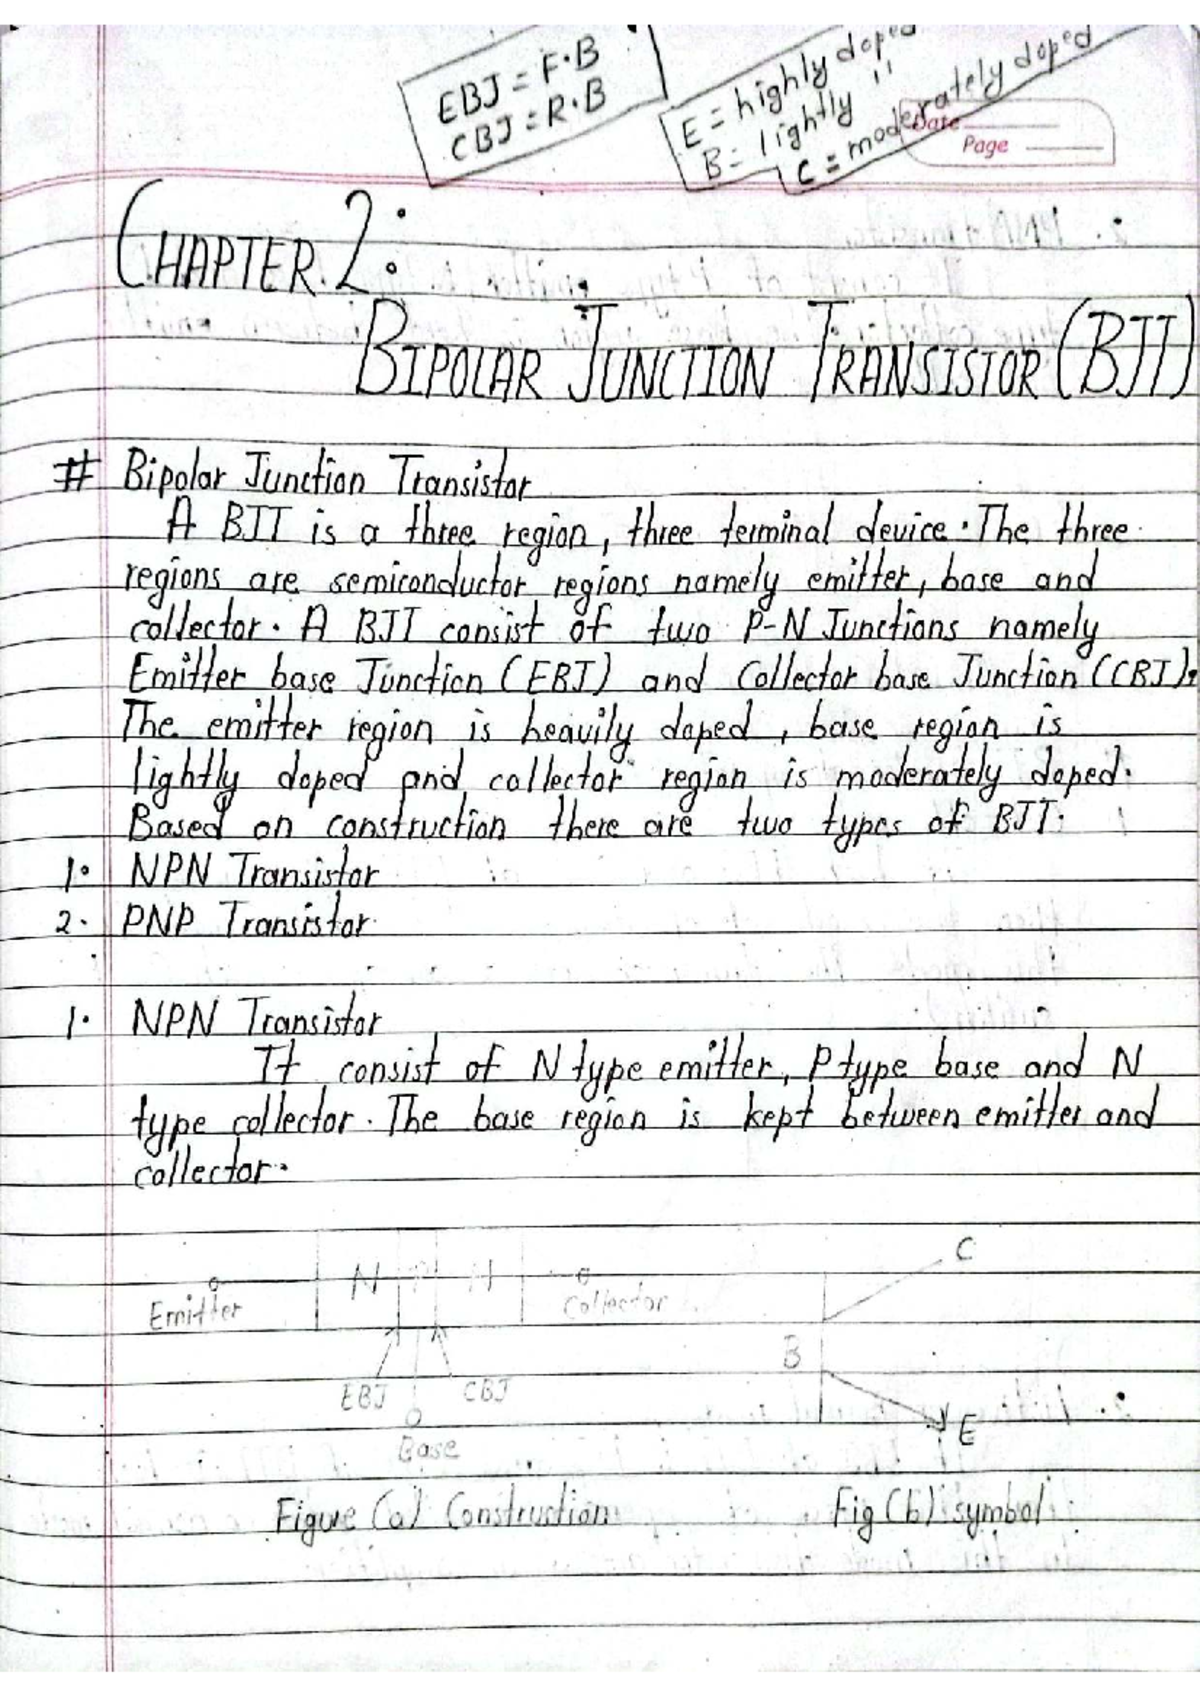 EBJ = F.B
CBJ = R.B
E = highly doped
B = lightly "
C = moderately doped
Date
Page
CHAPTER 2:
BIPOLAR JUNCTION TRANSISTOR (BJT)
# Bipolar Junction Transistor
A BJT is a three region, three terminal device. The three
regions are semiconductor regions namely emitter, base and
collector. A BJT consist of two P-N Junctions namely
Emitter base Junction (EBJ) and Collector base Junction (CBJ).
The emitter region is heavily doped, base region is
lightly doped and collector region is moderately doped.
Based on construction there are two types of BJT.
1. NPN Transistor
2. PNP Transistor
1. NPN Transistor
It consist of N type emitter, P type base and N
type collector. The base region is kept between emitter and
collector.
N P N
Emitter
Collector
EBJ
CBJ
Base
C
B
E
Figure (a) Construction
Fig (b) symbol